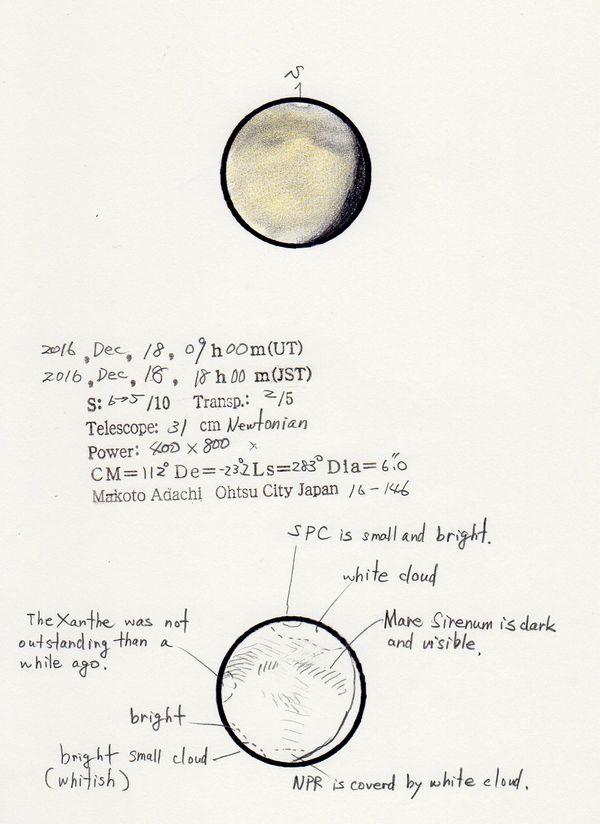 S
2016, Dec, 18, 09h00m(UT)
2016, Dec, 18, 18h00m(JST)
S: 6→5/10 Transp.: 2/5
Telescope: 31 cm Newtonian
Power: 400 × 800 ×
CM=112° De=-23.2 Ls=283° Dia=6".0
Makoto Adachi Ohtsu City Japan 16-146
SPC is small and bright.
white cloud
The Xanthe was not
outstanding than a
while ago.
Mare Sirenum is dark
and visible.
bright
bright small cloud
(whitish)
NPR is coverd by white cloud.